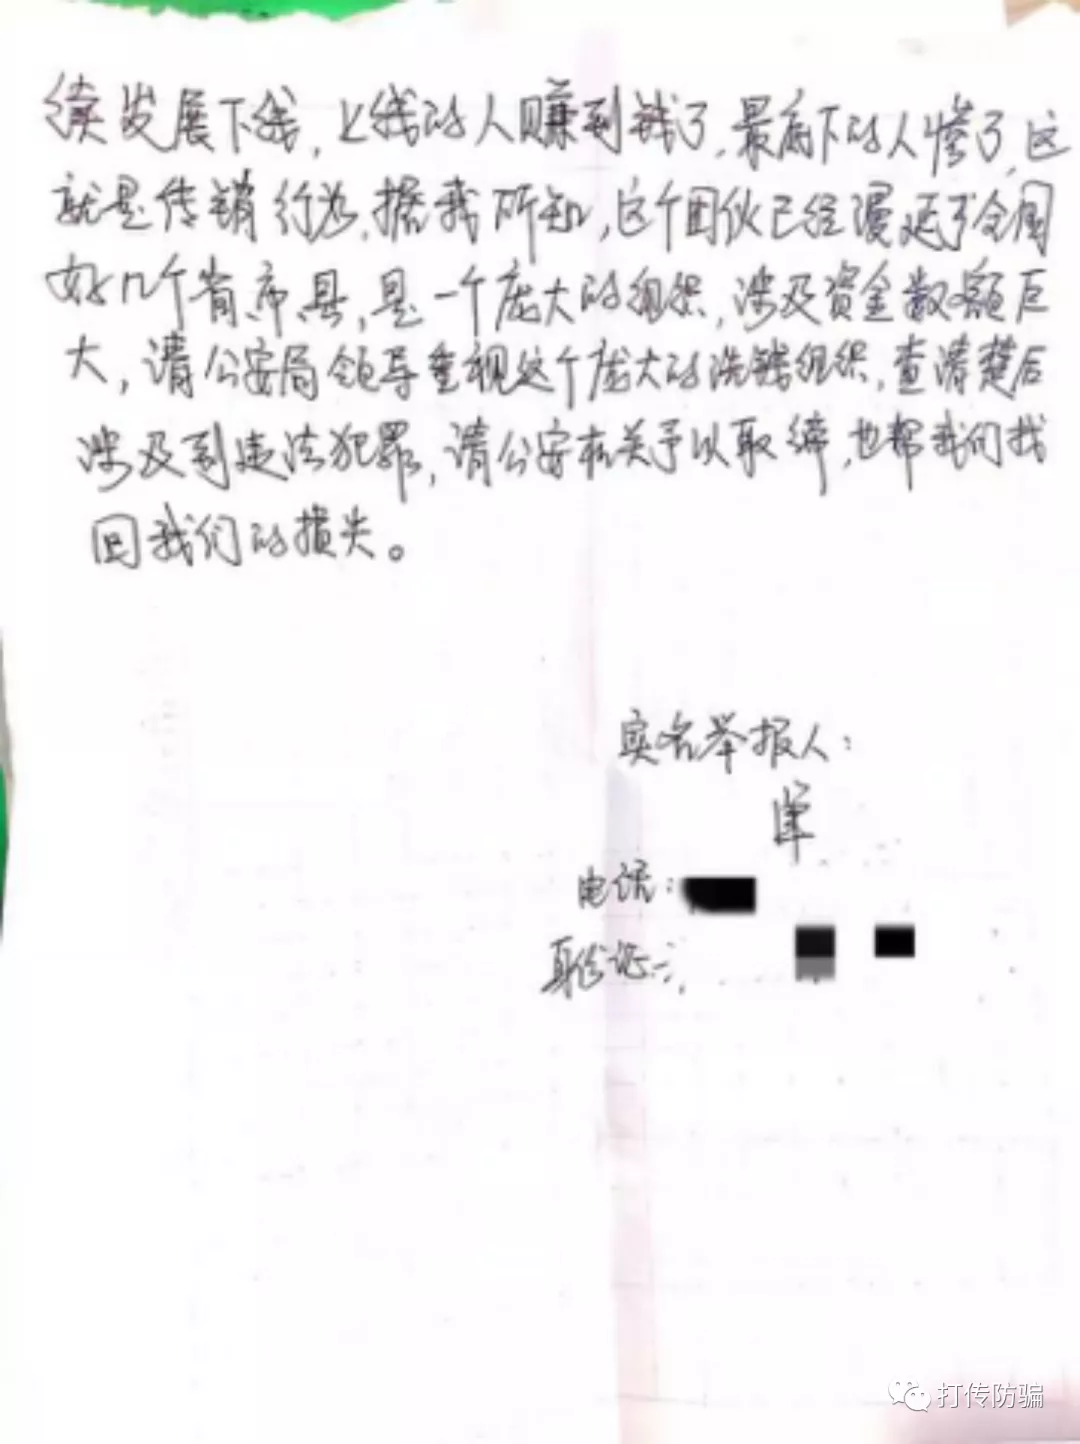 续发展下线，上线的人赚到钱了，最底下的人惨了，这
就是传销行为，据我所知，这个团伙已经漫延了全国
好几个省市县，是一个庞大的组织，涉及资金数额巨
大，请公安局领导重视这个庞大的洗钱组织，查清楚后
涉及到违法犯罪，请公安机关予以取缔，也帮我们找
回我们的损失。
实名举报人：
电话：
身份证：
打传防骗